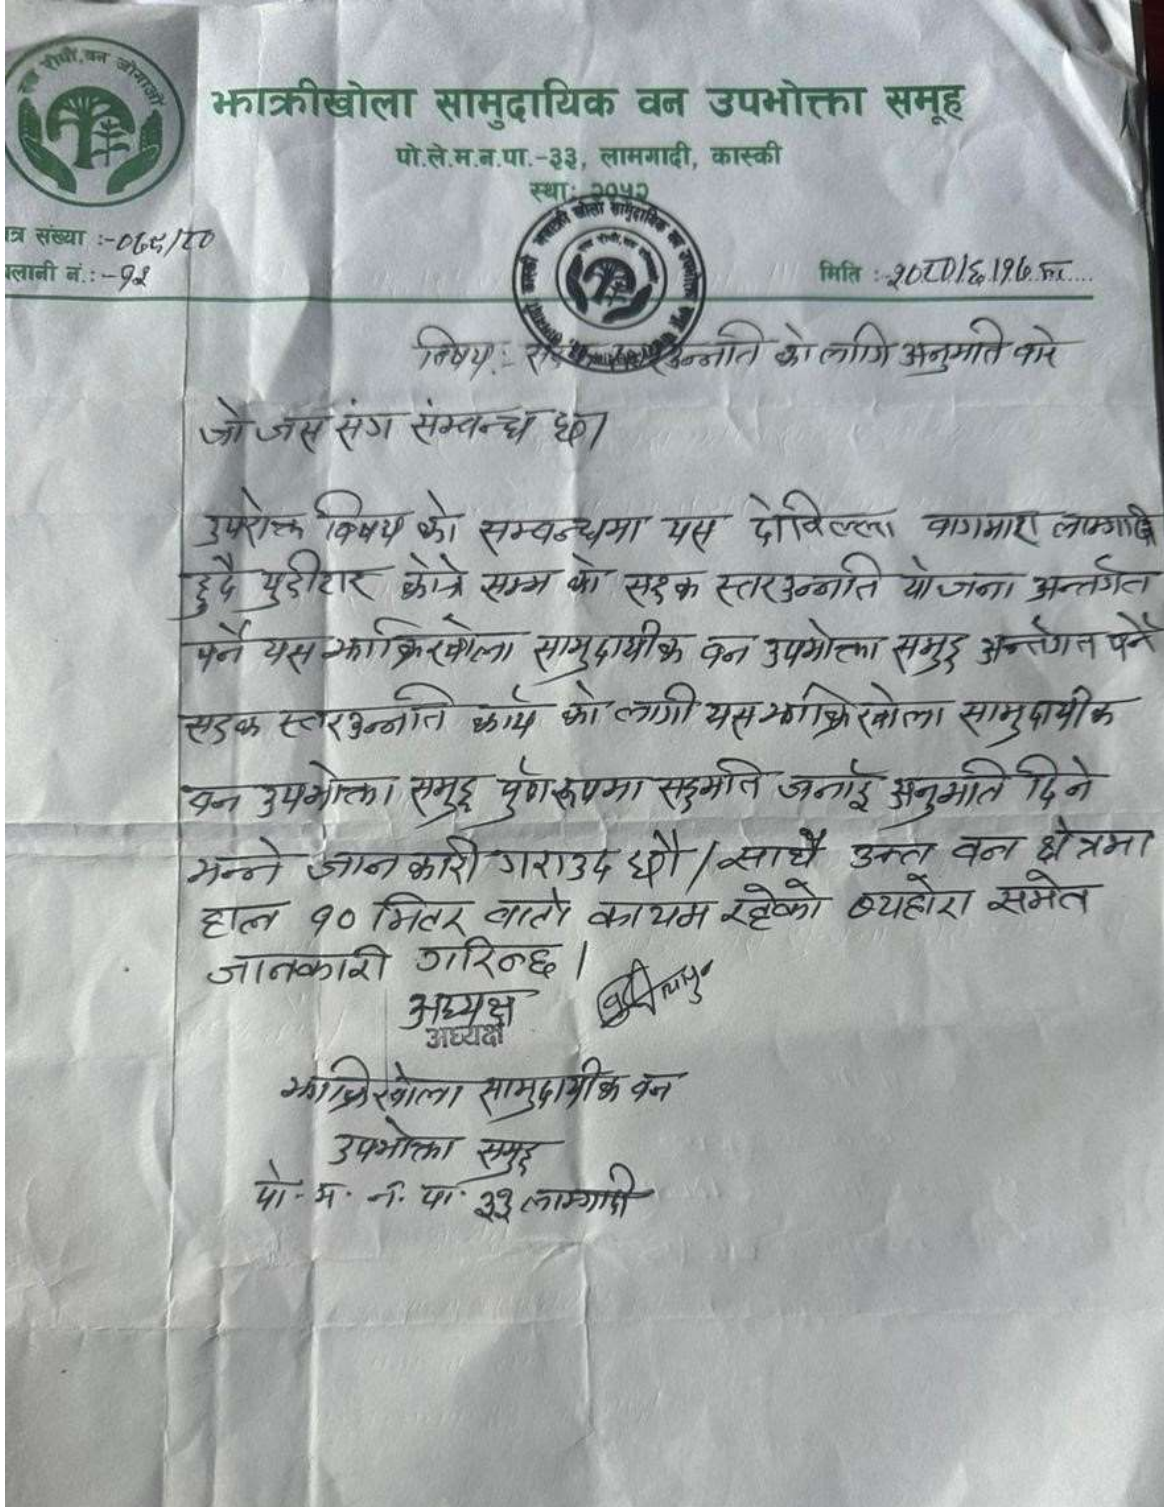 रुख रोपौं, वन जोगाऔं
झाक्रीखोला सामुदायिक वन उपभोक्ता समूह
पो.ले.म.न.पा.-३३, लामगादी, कास्की
स्था: २०५२
त्र संख्या :-०७९/८०
लानी नं.:-१२
मिति :-२०८०/६/१७ गते
विषय:- उन्नति को लागि अनुमति बारे
जो जस संग संम्वन्ध छ।
उपरोक्त विषय को सम्वन्धमा यस दोविल्ला वागमारा लामगादि
हुदै युदीटार कोत्रे सम्म को सडक स्तरउन्नति योजना अन्तर्गत
पर्ने यस झाक्रिखोला सामुदायीक वन उपभोक्ता समुह अन्र्तगत पर्ने
सडक स्तरउन्नति कार्य को लागी यस झाक्रिखोला सामुदायीक
वन उपभोक्ता समुह पुर्णरूपमा सहमति जनाई अनुमति दिने
भन्ने जानकारी गराउद छौ। साथै उक्त वन क्षेत्रमा
हाल १० मिटर वाटो कायम रहेको व्यहोरा समेत
जानकारी गरिन्छ।
अध्यक्ष
अध्यक्ष
झाक्रिखोला सामुदायीक वन
उपभोक्ता समुह
पो. म. न. पा. ३३ लामगादी